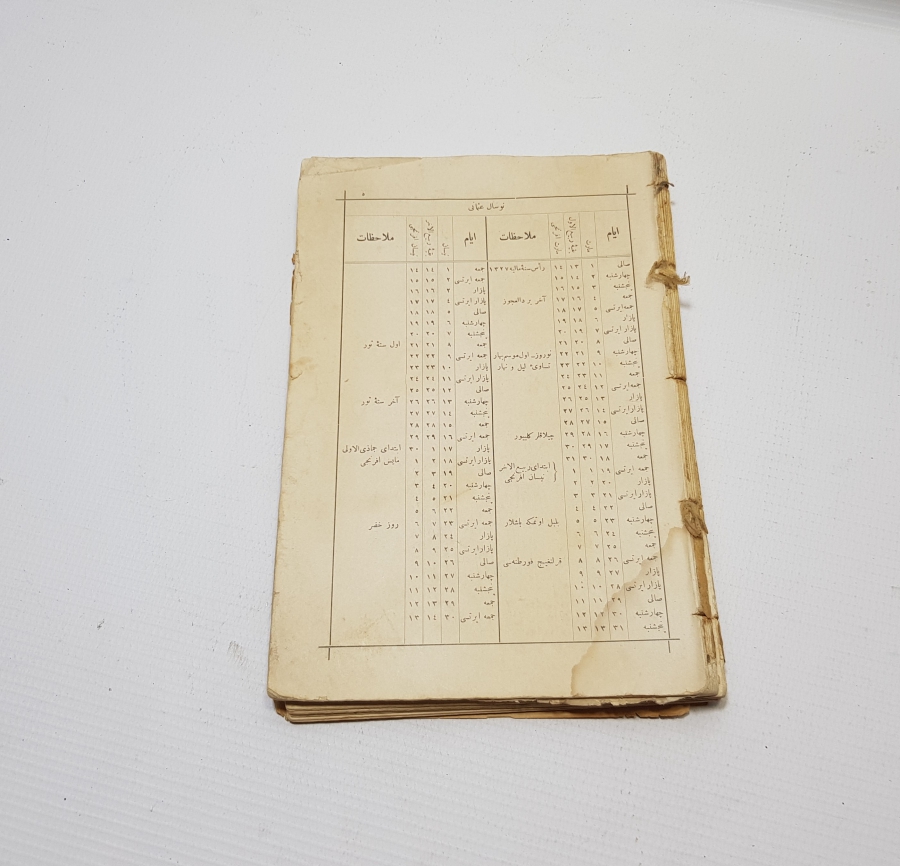 ٥
نوسال عثمانى
ايام مارت ربيع الاول مارت افرنجى ملاحظات ايام نيسان ربيع الآخر نيسان افرنجى ملاحظات
صالى ١ ١٣ ١٤ رأس سنهٔ ماليه ١٣٢٧ جمعه ١ ١٤ ١٤
چهارشنبه ٢ ١٤ ١٥ جمعه ايرتسى ٢ ١٥ ١٥
پنجشنبه ٣ ١٥ ١٦ بازار ٣ ١٦ ١٦
جمعه ٤ ١٦ ١٧ آخر بر دالعجوز بازار ايرتسى ٤ ١٧ ١٧
جمعه ايرتسى ٥ ١٧ ١٨ صالى ٥ ١٨ ١٨
بازار ٦ ١٨ ١٩ چهارشنبه ٦ ١٩ ١٩
بازار ايرتسى ٧ ١٩ ٢٠ پنجشنبه ٧ ٢٠ ٢٠
صالى ٨ ٢٠ ٢١ جمعه ٨ ٢١ ٢١ اول ستهٔ ثور
چهارشنبه ٩ ٢١ ٢٢ نوروز ـ اول موسم بهار جمعه ايرتسى ٩ ٢٢ ٢٢
پنجشنبه ١٠ ٢٢ ٢٣ تساوىٔ ليل و نهار بازار ١٠ ٢٣ ٢٣
جمعه ١١ ٢٣ ٢٤ بازار ايرتسى ١١ ٢٤ ٢٤
جمعه ايرتسى ١٢ ٢٤ ٢٥ صالى ١٢ ٢٥ ٢٥
بازار ١٣ ٢٥ ٢٦ چهارشنبه ١٣ ٢٦ ٢٦ آخر ستهٔ ثور
بازار ايرتسى ١٤ ٢٦ ٢٧ پنجشنبه ١٤ ٢٧ ٢٧
صالى ١٥ ٢٧ ٢٨ جمعه ١٥ ٢٨ ٢٨
چهارشنبه ١٦ ٢٨ ٢٩ چيلاقلر كليور جمعه ايرتسى ١٦ ٢٩ ٢٩
پنجشنبه ١٧ ٢٩ ٣٠ بازار ١٧ ١ ٣٠ ابتداى جماذى الاولى
جمعه ١٨ ٣٠ ٣١ بازار ايرتسى ١٨ ٢ ١ مايس افرنجى
جمعه ايرتسى ١٩ ١ ١ ابتداى ربيع الآخر صالى ١٩ ٣ ٢
بازار ٢٠ ٢ ٢ نيسان افرنجى چهارشنبه ٢٠ ٤ ٣
بازار ايرتسى ٢١ ٣ ٣ پنجشنبه ٢١ ٥ ٤
صالى ٢٢ ٤ ٤ جمعه ٢٢ ٦ ٥
چهارشنبه ٢٣ ٥ ٥ بلبل اوتمكه باشلار جمعه ايرتسى ٢٣ ٧ ٦ روز خضر
پنجشنبه ٢٤ ٦ ٦ بازار ٢٤ ٨ ٧
جمعه ٢٥ ٧ ٧ بازار ايرتسى ٢٥ ٩ ٨
جمعه ايرتسى ٢٦ ٨ ٨ قرلنغيج فورطنه سى صالى ٢٦ ١٠ ٩
بازار ٢٧ ٩ ٩ چهارشنبه ٢٧ ١١ ١٠
بازار ايرتسى ٢٨ ١٠ ١٠ پنجشنبه ٢٨ ١٢ ١١
صالى ٢٩ ١١ ١١ جمعه ٢٩ ١٣ ١٢
چهارشنبه ٣٠ ١٢ ١٢ جمعه ايرتسى ٣٠ ١٤ ١٣
پنجشنبه ٣١ ١٣ ١٣